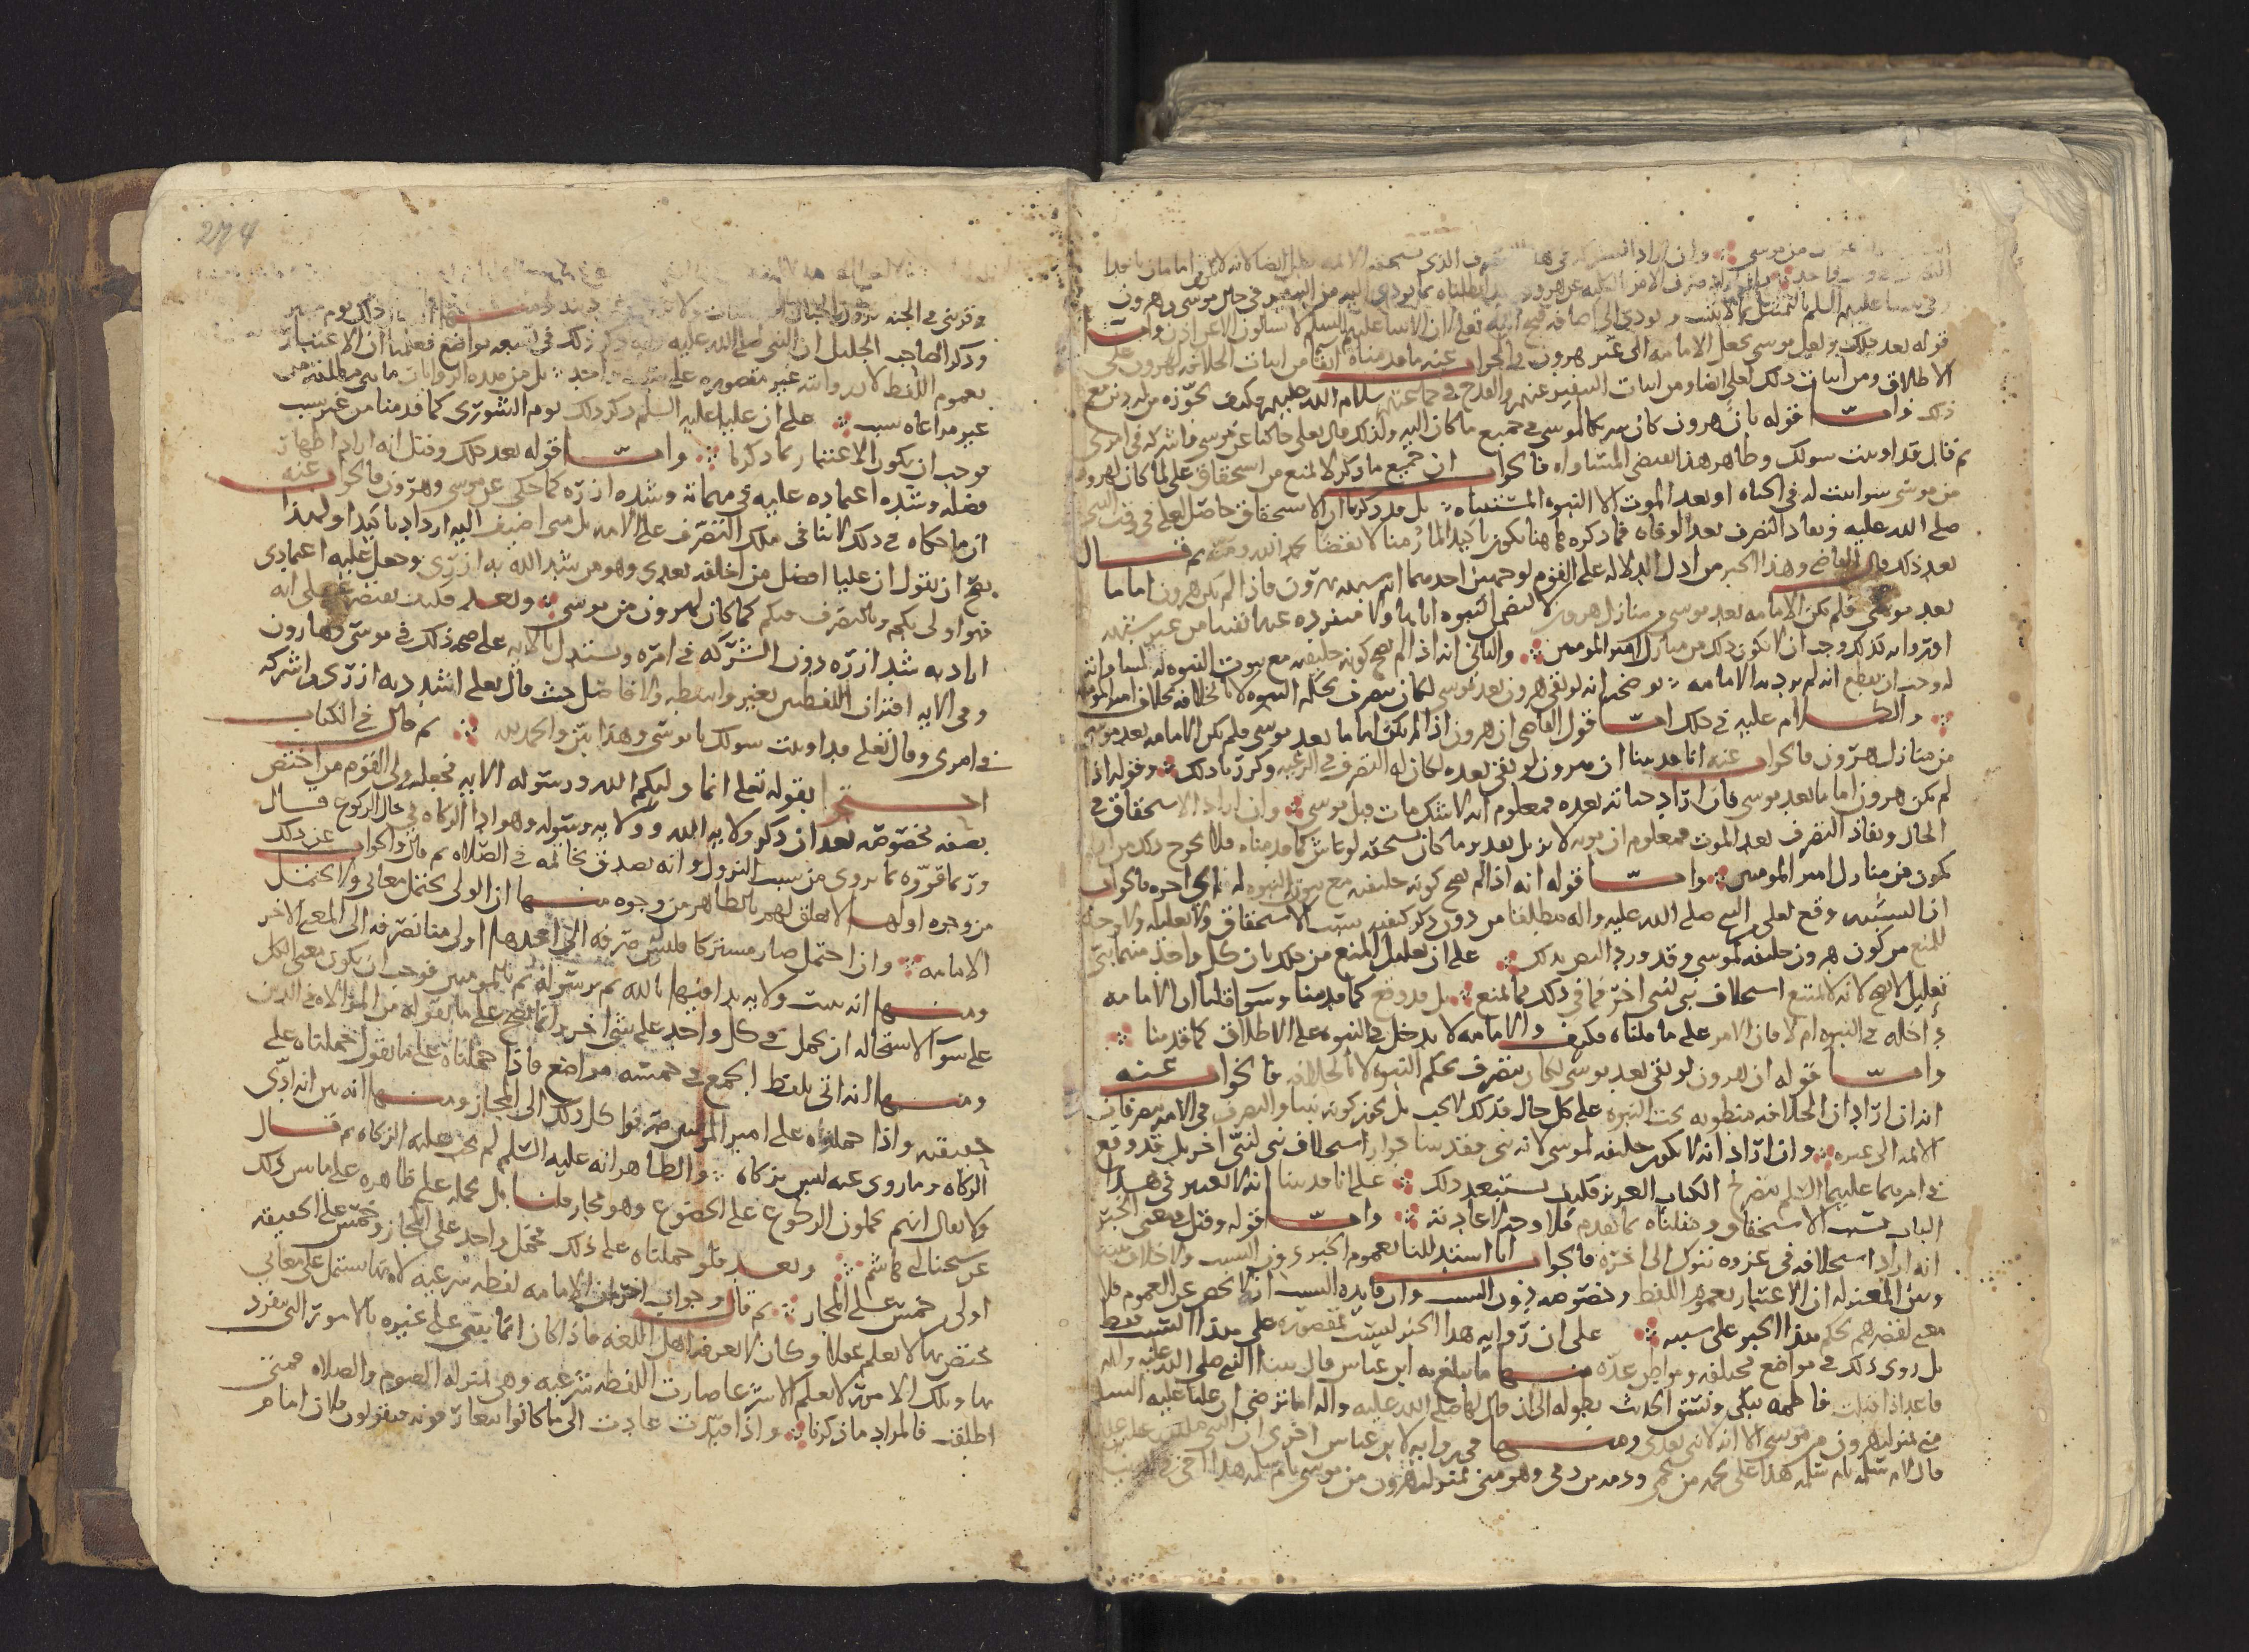 من موسى وان اراد
قوله بعد ذلك ولعل موسى جعل الامامه الى غير هرون فالجواب عنه ما قدمناه انفا من اثبات الخلافه لهرون على
الاطلاق ومن اثبات ذلك لعلي ايضا ومن اثبات التنفير عنهم والقدح في حالهم سلام الله عليهم وكيف نجوزه من دون مع
ذلك واما قوله بان هرون كان شريكا لموسى في جميع ما كان اليه ولذلك قال تعالى حاكيا عن موسى واشركه في امري
ثم قال قد اوتيت سولك وظاهر هذا يقتضي المساواه فالجواب ان جميع ما ذكر لا يمنع من استحقاق علي لما كان لهرون
من موسى سوا ثبت له في الحياه او بعد الموت الا النبوه المستثناه بل قد ذكرنا ان الاستحقاق حاصل لعلي في وقت النبي
صلى الله عليه ونفاذ التصرف بعد الوفاه فما ذكره هاهنا يكون تاكيدا لما رمنا لا نقضا بحمد الله ومنه ثم قال
بعد ذلك قال القاضي وهذا الخبر من ادل الدلاله على القوم لوجهين احدهما انه شبهه بهرون فاذا لم يكن هرون اماما
بعد موسى فلم تكن الامامه بعد موسى من منازل هرون لا لتضمن النبوه اياها ولا منفرده عنها
وجب ان لا تكون ذلك من منازل امير المومنين والثاني انه اذا لم يصح كونه خليفه مع ثبوت النبوه له
له وجب ان يقطع انه لم يرد به الامامه يوضحه انه لو بقي هرون بعد موسى لكان يتصرف بحكم النبوه لا بالخلافه بخلاف امير المومنين
والكلام عليه في ذلك اما قول القاضي ان هرون اذا لم يكن اماما بعد موسى فلم تكن الامامه بعد موسى
من منازل هرون فالجواب عنه انا قد بينا ان هرون لو بقي بعده لكان له التصرف في الرعيه وكررنا ذلك وقوله اذا
لم يكن هرون اماما بعد موسى فان اراد حياته بعده فمعلوم انه لا شك مات قبل موسى وان اراد الاستحقاق في
الحال ونفاذ التصرف بعد الموت فمعلوم ان موته لا يزيل بعد موته ما كان يستحقه لو عاش كما قدمناه فلا يخرج ذلك من ان
يكون من منازل امير المومنين واما قوله انه اذا لم يصح كونه خليفه مع ثبوت النبوه له الى اخره فالجواب
ان التشبيه وقع لعلي بالنبي صلى الله عليه واله مطلقا من دون ذكر كيفيه سبب الاستحقاق ولا تعليله ولا وجه
للمنع من كون هرون خليفه لموسى وقد ورد النص بذلك على ان تعليل المنع من ذلك بان كل واحد منهما نبي
تعليل لا يصح لانه لا يمتنع استخلاف نبي لنبي اخر فما في ذلك مما يمنع بل قد وقع كما قدمنا وسوا قلنا ان الامامه
داخله في النبوه ام لا فان الامر على ما قلناه فكيف والامامه لا تدخل في النبوه على الاطلاق كما قدمنا
واما قوله ان هرون لو بقي بعد موسى لكان يتصرف بحكم النبوه لا بالخلافه فالجواب عنه
انه ان اراد ان الخلافه منطويه تحت النبوه على كل حال فذلك لا يجب بل يجوز كونه نبيا والتصرف في الامه مصروفا في
الامه الى غيره وان اراد انه لا يكون خليفه لموسى لانه نبي فقد بينا جواز استخلاف نبي لنبي اخر بل قد وقع
في امرهما عليهما السلم بتصريح الكتاب العزيز فكيف يستبعد ذلك على انا قد بينا انه لا تعتبر في هذا
الباب سبب الاستحقاق وحققناه بما تقدم فلا وجه لاعادته واما قوله وقيل ومعنى الخبر
انه اراد استخلافه في غزوه تبوك الى اخره فالجواب انا استدللنا بعموم الخبر دون السبب ولا خلاف بيننا
وبين المعتزله ان الاعتبار بعموم اللفظ وخصوصه دون السبب وان فايده السبب ان لا يخص عن العموم فلا
معنى لقصرهم بحكم هذا الخبر على سببه على ان روايه هذا الخبر ليست بمقصوره على هذا السبب فقط
بل روى ذلك في مواضع مختلفه ومواطن عده منها ما يبلغ به ابن عباس قال بينا النبي صلى الله عليه واله
قاعدا اذ اقبلت فاطمه تبكي ونسق الحديث بطوله الى ان قال لها صلى الله عليه واله اما ترضي ان عليا عليه السلم
مني بمنزله هرون من موسى الا انه لا نبي بعدي ومنها في روايه لابن عباس اخرى ان النبي صلى الله عليه
قال لام سلمه يا ام سلمه هذا علي لحمه من لحمي ودمه من دمي وهو مني بمنزله هرون من موسى يا ام سلمه هذا اخي في
274
وقريني في الجنه
وذكر الصاحب الجليل ان النبي صلى الله عليه واله ذكر ذلك في تسعه مواضع فعلمنا ان الاعتبار
بعموم اللفظ لا بد وانه غير مقصوره على سبب واحد بل من هذه الروايات ما هي مطلقه من
غير مراعاه سبب على ان عليا عليه السلم ذكر ذلك يوم الشورى كما قدمنا من غير سبب
فوجب ان يكون الاعتبار بما ذكرنا واما قوله بعد ذلك وقيل انه اراد اظهار
فضله وشده اعتماده عليه في مهماته وشده ازره كما حكي عن موسى وهرون فالجواب عنه
ان ما حكاه في ذلك لا ينافي ملك التصرف على الامه بل متى اضيف اليه ازداد تاكيدا ولهذا
يصح ان نقول ان عليا افضل من اخلفه بعدي وهو من شد الله به ازري وجعل عليه اعتمادي
فهو اولى بكم وبالتصرف فيكم كما كان لهرون من موسى وبعد فكيف يقتصر على انه
اراد به شد ازره دون الشركه في امره ويستدل بالايه على صحه ذلك في موسى وهارون
وفي الايه اقتران اللفظين بغير واسطه ولا فاصل حيث قال تعالى اشدد به ازري واشركه
في امري وقال تعالى قد اوتيت سولك يا موسى وهذا بين والحمد لله ثم قال في الكتاب
احتجوا بقوله تعالى انما وليكم الله ورسوله الايه فجعله ولي القوم من اختص
بصفه مخصوصه بعد ان ذكر ولايه الله وولايه رسوله وهو ايتا الزكاه في حال الركوع قال
وربما قرره بما يروى من سبب النزول وانه تصدق بخاتمه في الصلاه ثم قال والجواب عن ذلك
من وجوه اولها لا تعلق لهم بالظاهر من وجوه منها ان الولي يحتمل معاني ولا يحتمل
الامامه وان احتمل صار مشتركا فليس صرفه الى احدهما اولى من تصرفه الى المعنى الاخر
ومنها انه ثبت ولايه بدا فيها بالله ثم برسوله ثم بالمومنين فوجب ان يكون معنى الكل
على سوا لاستحاله ان يحمل في كل واحد على شي اخر وانما يصح على ما نقوله من الموالاه في الدين
ومنها انه اتى بلفظ الجمع في خمسه مواضع فاذا حملناه على ما نقول حملناه على
حقيقته واذا حملوه على امير المومنين صرفوا كل ذلك الى المجاز ومنها انه بين انه ادى
الزكاه وما روي عنه ليس بزكاه والظاهر انه عليه السلم لم يجب عليه الزكاه ثم قال
ولا يقال انهم يحملون الركوع على الخضوع وهو مجاز قلنا بل نحمله على ظاهره على ما بين ذلك
عن شيخنا ابي هاشم وبعد فلو حملناه على ذلك لحمل واحد على المجاز وخمس على الحقيقه
اولى من خمس على المجاز ثم قال وجواب اخر ان الامامه لفظه شرعيه لانها تشتمل على معاني
مختص بها لا يعلم عقلا وكان لا يعرفه اهل اللغه فاذا كان انما ينبي على غيره بالامور التي ينفرد
بها وتلك الامور لا تعلم الا شرعا صارت اللفظه شرعيه وهي بمنزله الصوم والصلاه فمتى
اطلقت فالمراد ما ذكرنا واذا قيدت عادت الى ما كانوا يتعارفونه فيقولون فلان امام